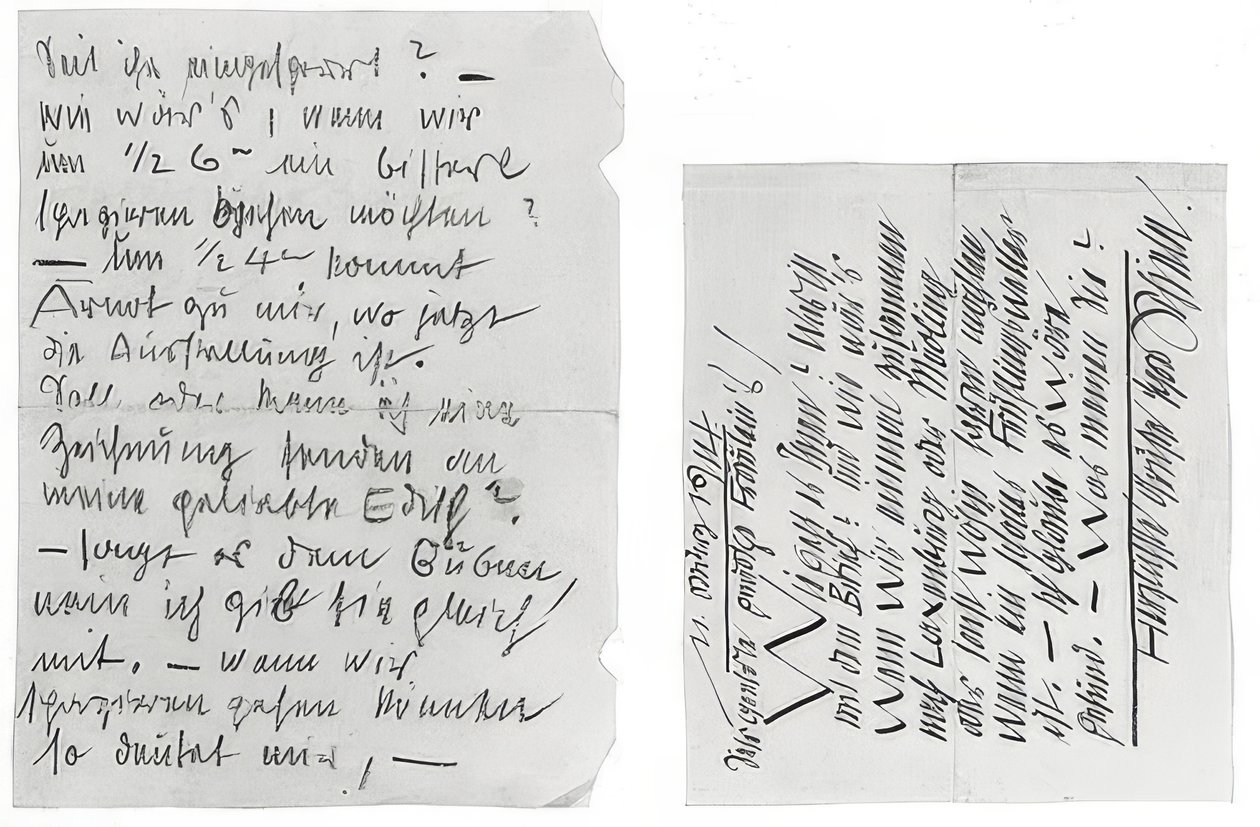 Seit ihr eingesperrt ? —
wie wär's, wenn wir
um 1/2 6 h ein bisserl
spazieren gehen möchten ?
— Um 1/2 4 h kommt
Arnot zu mir, wo jetzt
die Ausstellung ist.
Soll oder kann ich eine
Zeichnung senden an
meine geliebte Edith?
— sagt es dem Buben
nein ich gieb sie gleich
mit. — wann wir
spazieren gehen könnten
so deutet mir, —
März 1914
Sehr geehrte gnädige Fräulein!
Wie es Ihnen?
mit dem Brief? und wie wär's
Wenn wir einmal zusammen
nach Laxenburg oder Mödling
oder sonst wohin fahren möchten,
wenn ein schönes Frühlingswetter
ist. — ich glaube es wäre
gesund. — Was meinen Sie?
Herzliche Grüße Egon Schiele.